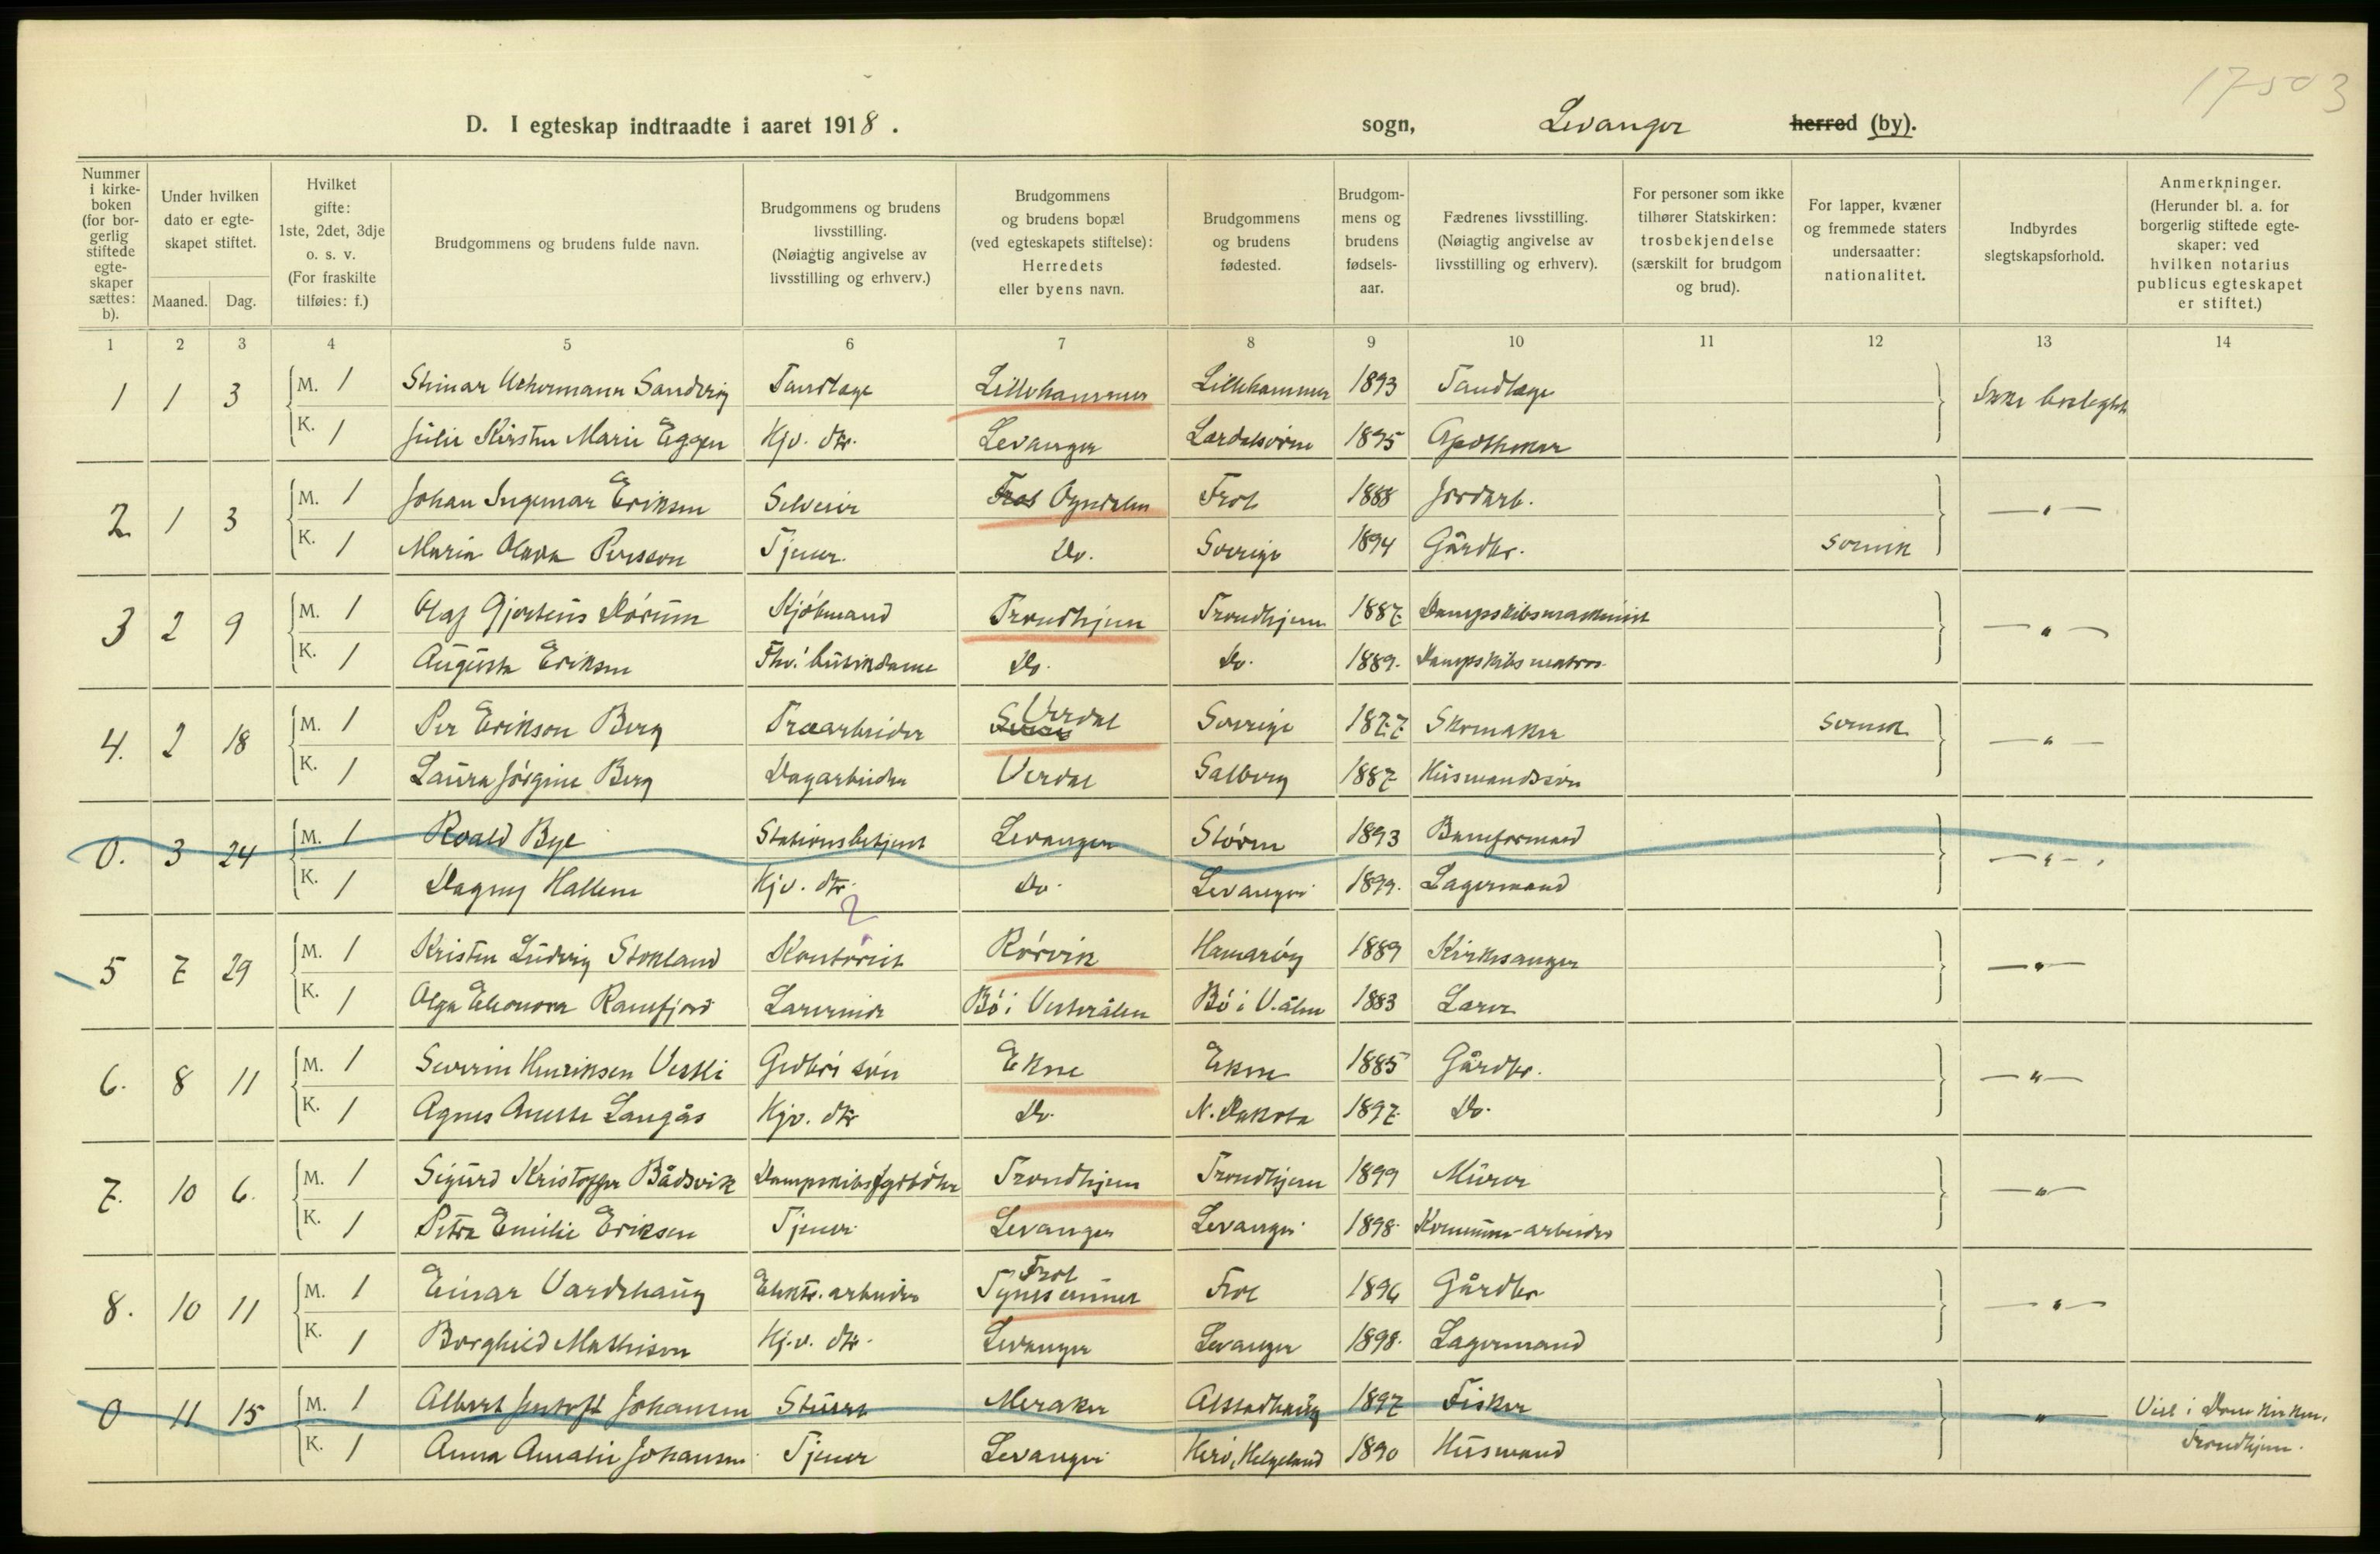 17503
D. I egteskap indtraadte i aaret 1918. sogn, Levanger herred (by).
Nummer i kirkeboken (for borgerlig stiftede egteskaper sættes: b).
Under hvilken dato er egteskapet stiftet.
Maaned. Dag.
Hvilket gifte: 1ste, 2det, 3dje o. s. v. (For fraskilte tilføies: f.)
Brudgommens og brudens fulde navn.
Brudgommens og brudens livsstilling. (Nøiagtig angivelse av livsstilling og erhverv.)
Brudgommens og brudens bopæl (ved egteskapets stiftelse): Herredets eller byens navn.
Brudgommens og brudens fødested.
Brudgommens og brudens fødselsaar.
Fædrenes livsstilling. (Nøiagtig angivelse av livsstilling og erhverv).
For personer som ikke tilhører Statskirken: trosbekjendelse (særskilt for brudgom og brud).
For lapper, kvæner og fremmede staters undersaatter: nationalitet.
Indbyrdes slegtskapsforhold.
Anmerkninger. (Herunder bl. a. for borgerlig stiftede egteskaper: ved hvilken notarius publicus egteskapet er stiftet.)
1 2 3 4 5 6 7 8 9 10 11 12 13 14
1 1 3 M. 1 Sandvig Tandlæge Lillehammer Lillehammer 1893 Tandlæge Ikke beslegtet
K. 1 Julie Kirsten Marie Eggen Hjv. dtr. Levanger Lærdalsøren 1895 Apotheker
2 1 3 M. 1 Johan Ingemar Eriksen Selveier Frol Ogndalen Frol 1888 Jordarb. — " —
K. 1 Maria Olava Persson Tjener. Do. Sverige 1894 Gårdbr. svensk
3 2 9 M. 1 Olaf Gjertsius Dørum Kjøbmand Trondhjem Trondhjem 1887 Dampskibsmaskinist — " —
K. 1 Augusta Eriksen Fhv. butikdame Do. Do. 1889. Dampskibsmatros.
4. 2 18 M. 1 Per Erikson Berg Træarbeider Verdal Sverige 1877 Skomaker svensk — " —
K. 1 Laura Jørgine Berg Dagarbeider Verdal Salberg 1887 Husmandssøn
0. 3 24 M. 1 Roald Bye Stationsbetjent Levanger Støren 1893 Baneformand — " —
K. 1 Dagny Hallem Hjv. dtr. Do. Levanger 1899. Lagermand
2
5 7 29 M. 1 Kristen Ludvig Stokland Kontorist Rørvik Hamarøy 1889 Kirkesanger — " —
K. 1 Olga Eleonora Ramfjord Lærerinde Bø i Vesterålen Bø i V.ålen 1883 Lærer
6. 8 11 M. 1 Severin Henriksen Veske Gdbr. søn Ekne Ekne 1885 Gårdbr. — " —
K. 1 Agnes Anette Langås Hjv. dtr Do. N. Dakota 1897 Do.
7. 10 6. M. 1 Sigurd Kristoffer Bådsvik Dampskibsfyrbøter Trondhjem Trondhjem 1899 Murer — " —
K. 1 Petra Emilie Eriksen Tjener Levanger Levanger 1898 Kommune-arbeider
8. 10 11 M. 1 Einar Vardehaug Elektr. arbeider Frol Frol 1896 Gårdbr — " —
K. 1 Borghild Mathisen Hj.v. dtr. Levanger Levanger 1898. Lagermand
0 11 15 M. 1 Albert Johansen Stuert Meraker Alstadhaug 1897 Fisker — " — Viet i Domkirken, Trondhjem.
K. 1 Anna Amalie Johansen Tjener Levanger Herø, Helgeland 1890 Husmand